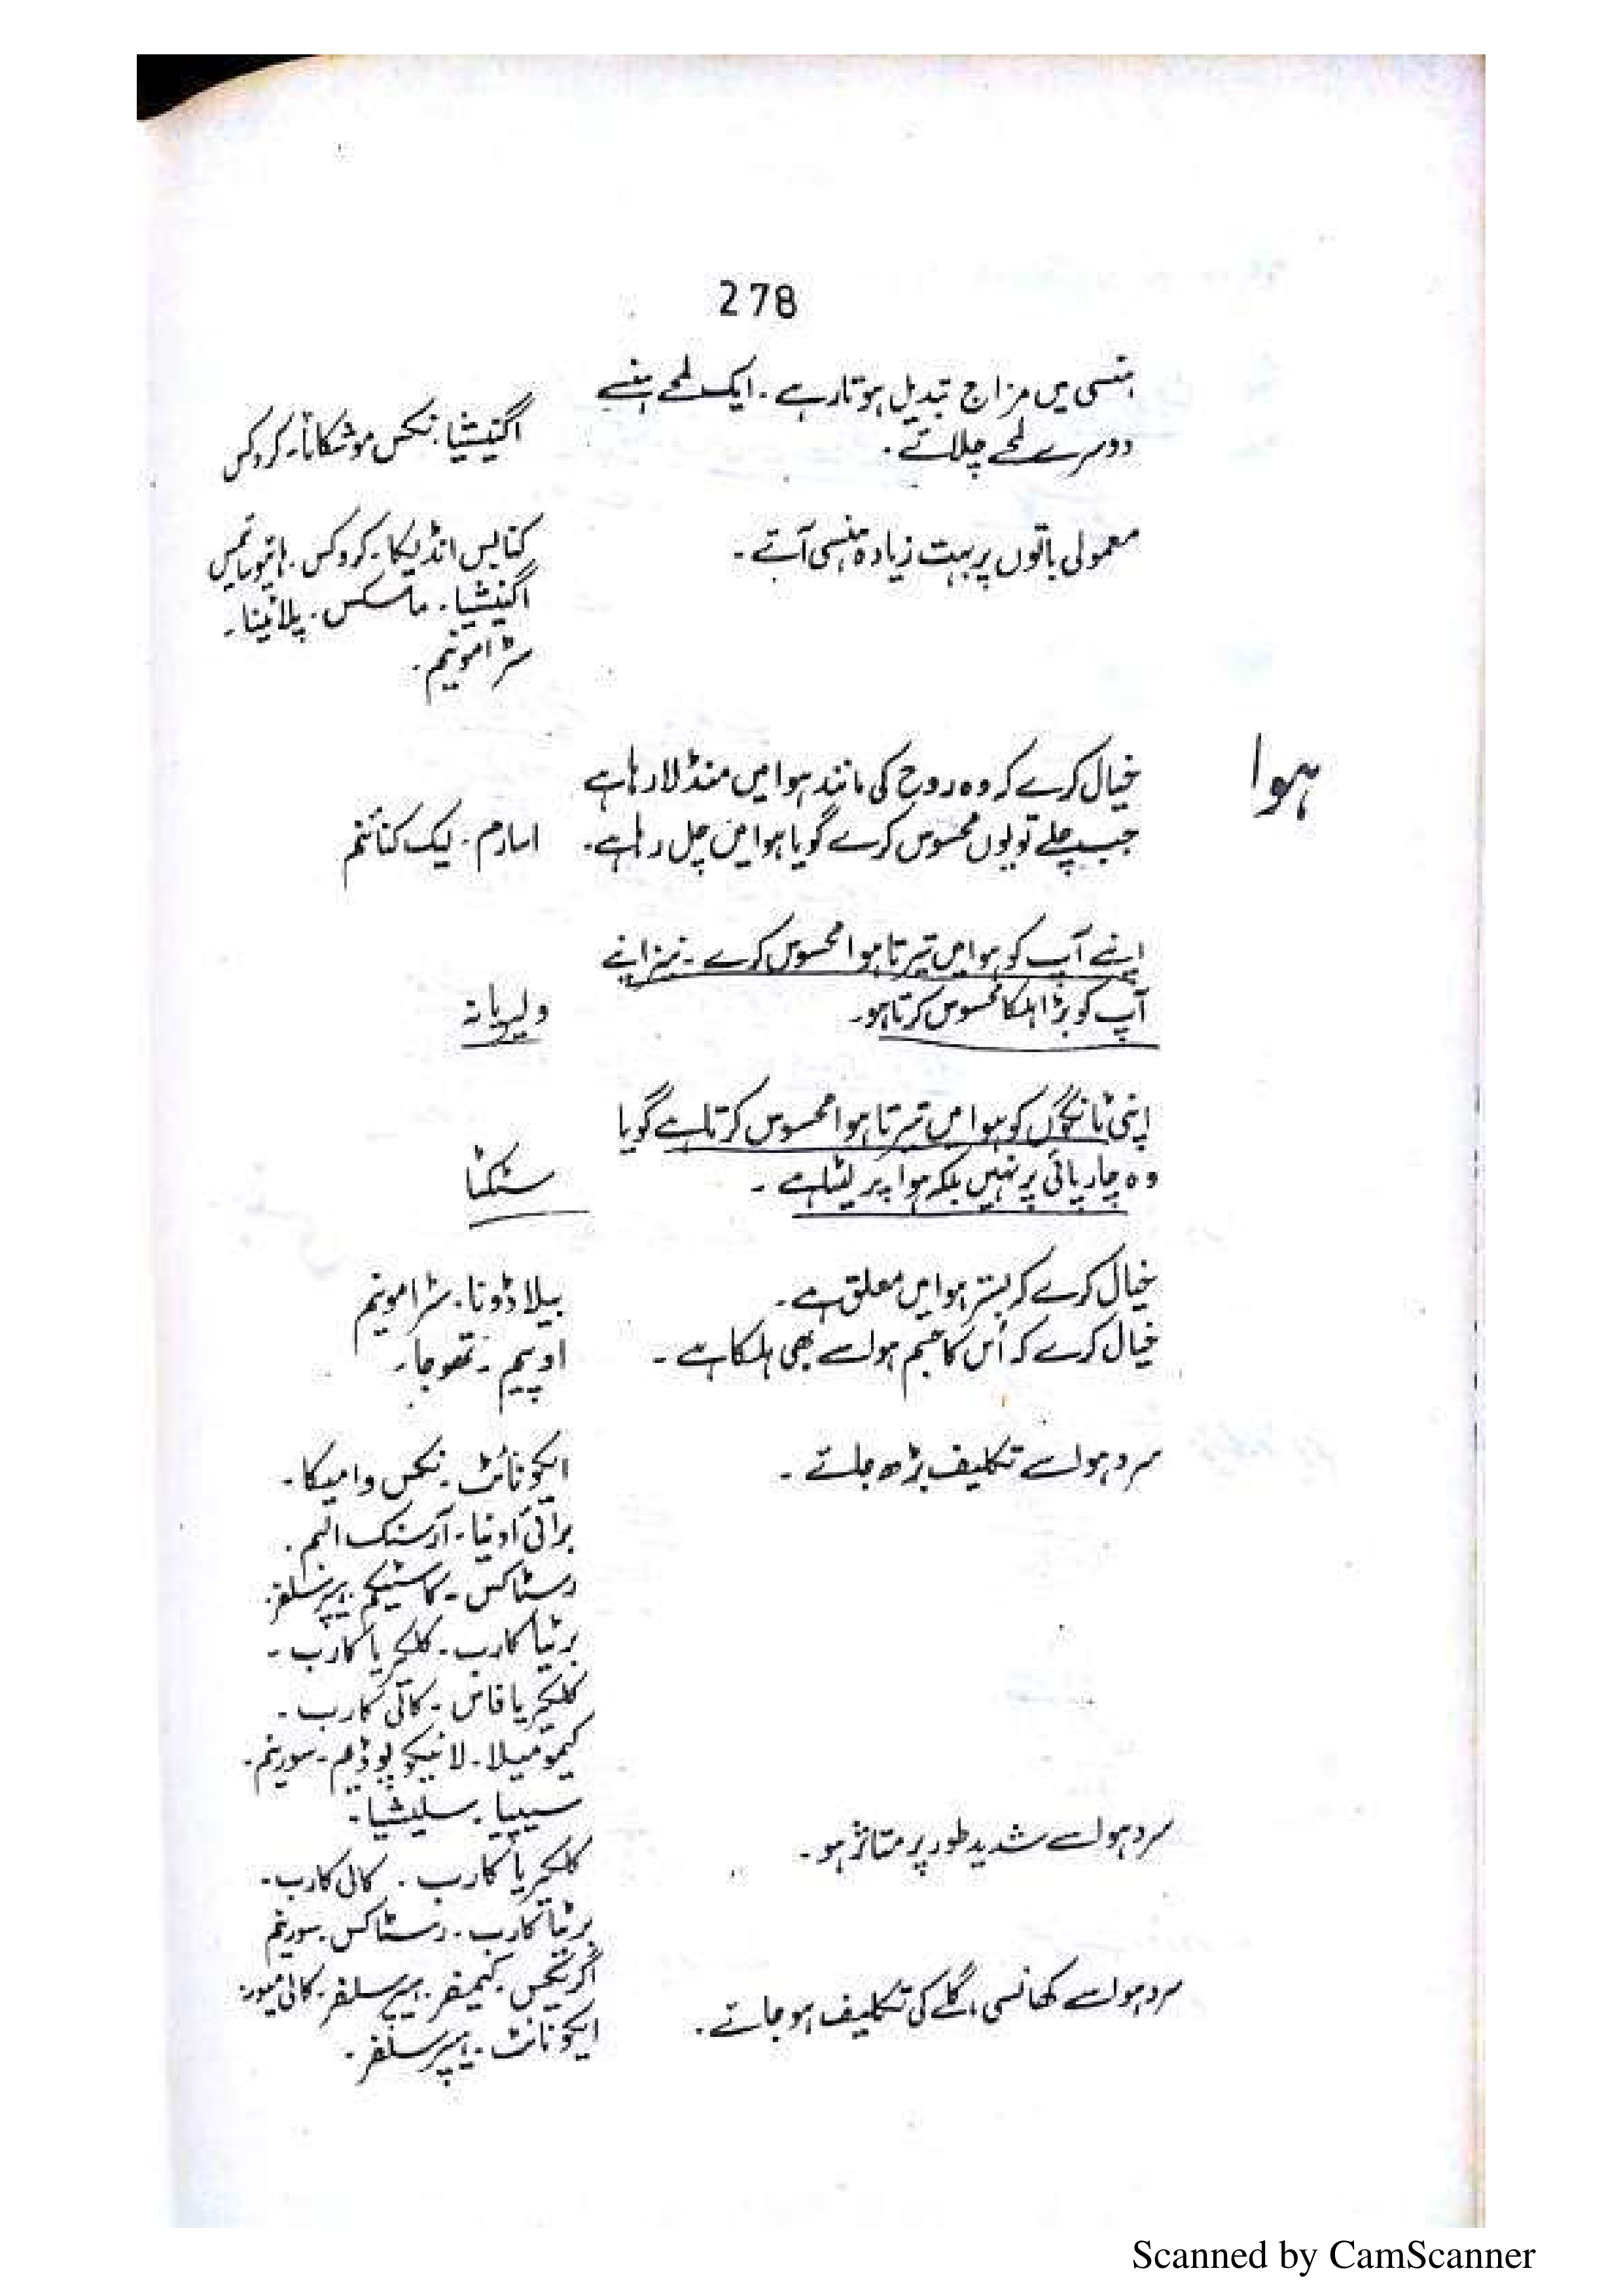 278
ہنسی میں مزاج تبدیل ہوتا رہے ۔ ایک لمحے ہنسے
دوسرے لمحے چلائے ۔
اگنیشیا ۔ نکس موشکاٹا ۔ کروکس
معمولی باتوں پر بہت زیادہ ہنسی آئے ۔
کنابس انڈیکا ۔ کروکس ۔ ہائیوسائمس
اگنیشیا ۔ ماسکس ۔ پلاٹینا ۔
سڑامونیم ۔
ہوا
خیال کرے کہ وہ روح کی مانند ہوا میں منڈلا رہا ہے
جب چلے تو یوں محسوس کرے گویا ہوا میں چل رہا ہے ۔
اسارم ۔ لیک کنائنم
اپنے آپ کو ہوا میں تیرتا ہوا محسوس کرے ۔ نیز اپنے
آپ کو بڑا ہلکا محسوس کرتا ہو ۔
ولیریانہ
اپنی ٹانگوں کو ہوا میں تیرتا ہوا محسوس کرتا ہے گویا
وہ چارپائی پر نہیں بلکہ ہوا پر لیٹا ہے ۔
سٹکٹا
خیال کرے کہ بستر ہوا میں معلق ہے ۔
بیلاڈونا ۔ سڑامونیم
خیال کرے کہ اُس کا جسم ہوا سے بھی ہلکا ہے ۔
اوپیم ۔ تھوجا ۔
سرد ہوا سے تکلیف بڑھ جائے ۔
ایکونائٹ ۔ نکس وامیکا ۔
برائی اونیا ۔ آرسنک البم ۔
رسٹاکس ۔ کاسٹیکم ۔ ہیپر سلفر ۔
برٹیا کارب ۔ کلکیریا کارب ۔
کلکیریا فاس ۔ کالی کارب ۔
کیمومیلا ۔ لائیکو پوڈیم ۔ سورینم ۔
سیپیا ۔ سلیشیا ۔
سرد ہوا سے شدید طور پر متاثر ہو ۔
کلکیریا کارب ۔ کالی کارب ۔
برٹیا کارب ۔ رسٹاکس ۔ سورینم
اگریکس ۔ کیمفر ۔ ہیپر سلفر ۔ کالی میور ۔
سرد ہوا سے کھانسی، گلے کی تکلیف ہو جائے ۔
ایکونائٹ ۔ ہیپر سلفر ۔
Scanned by CamScanner